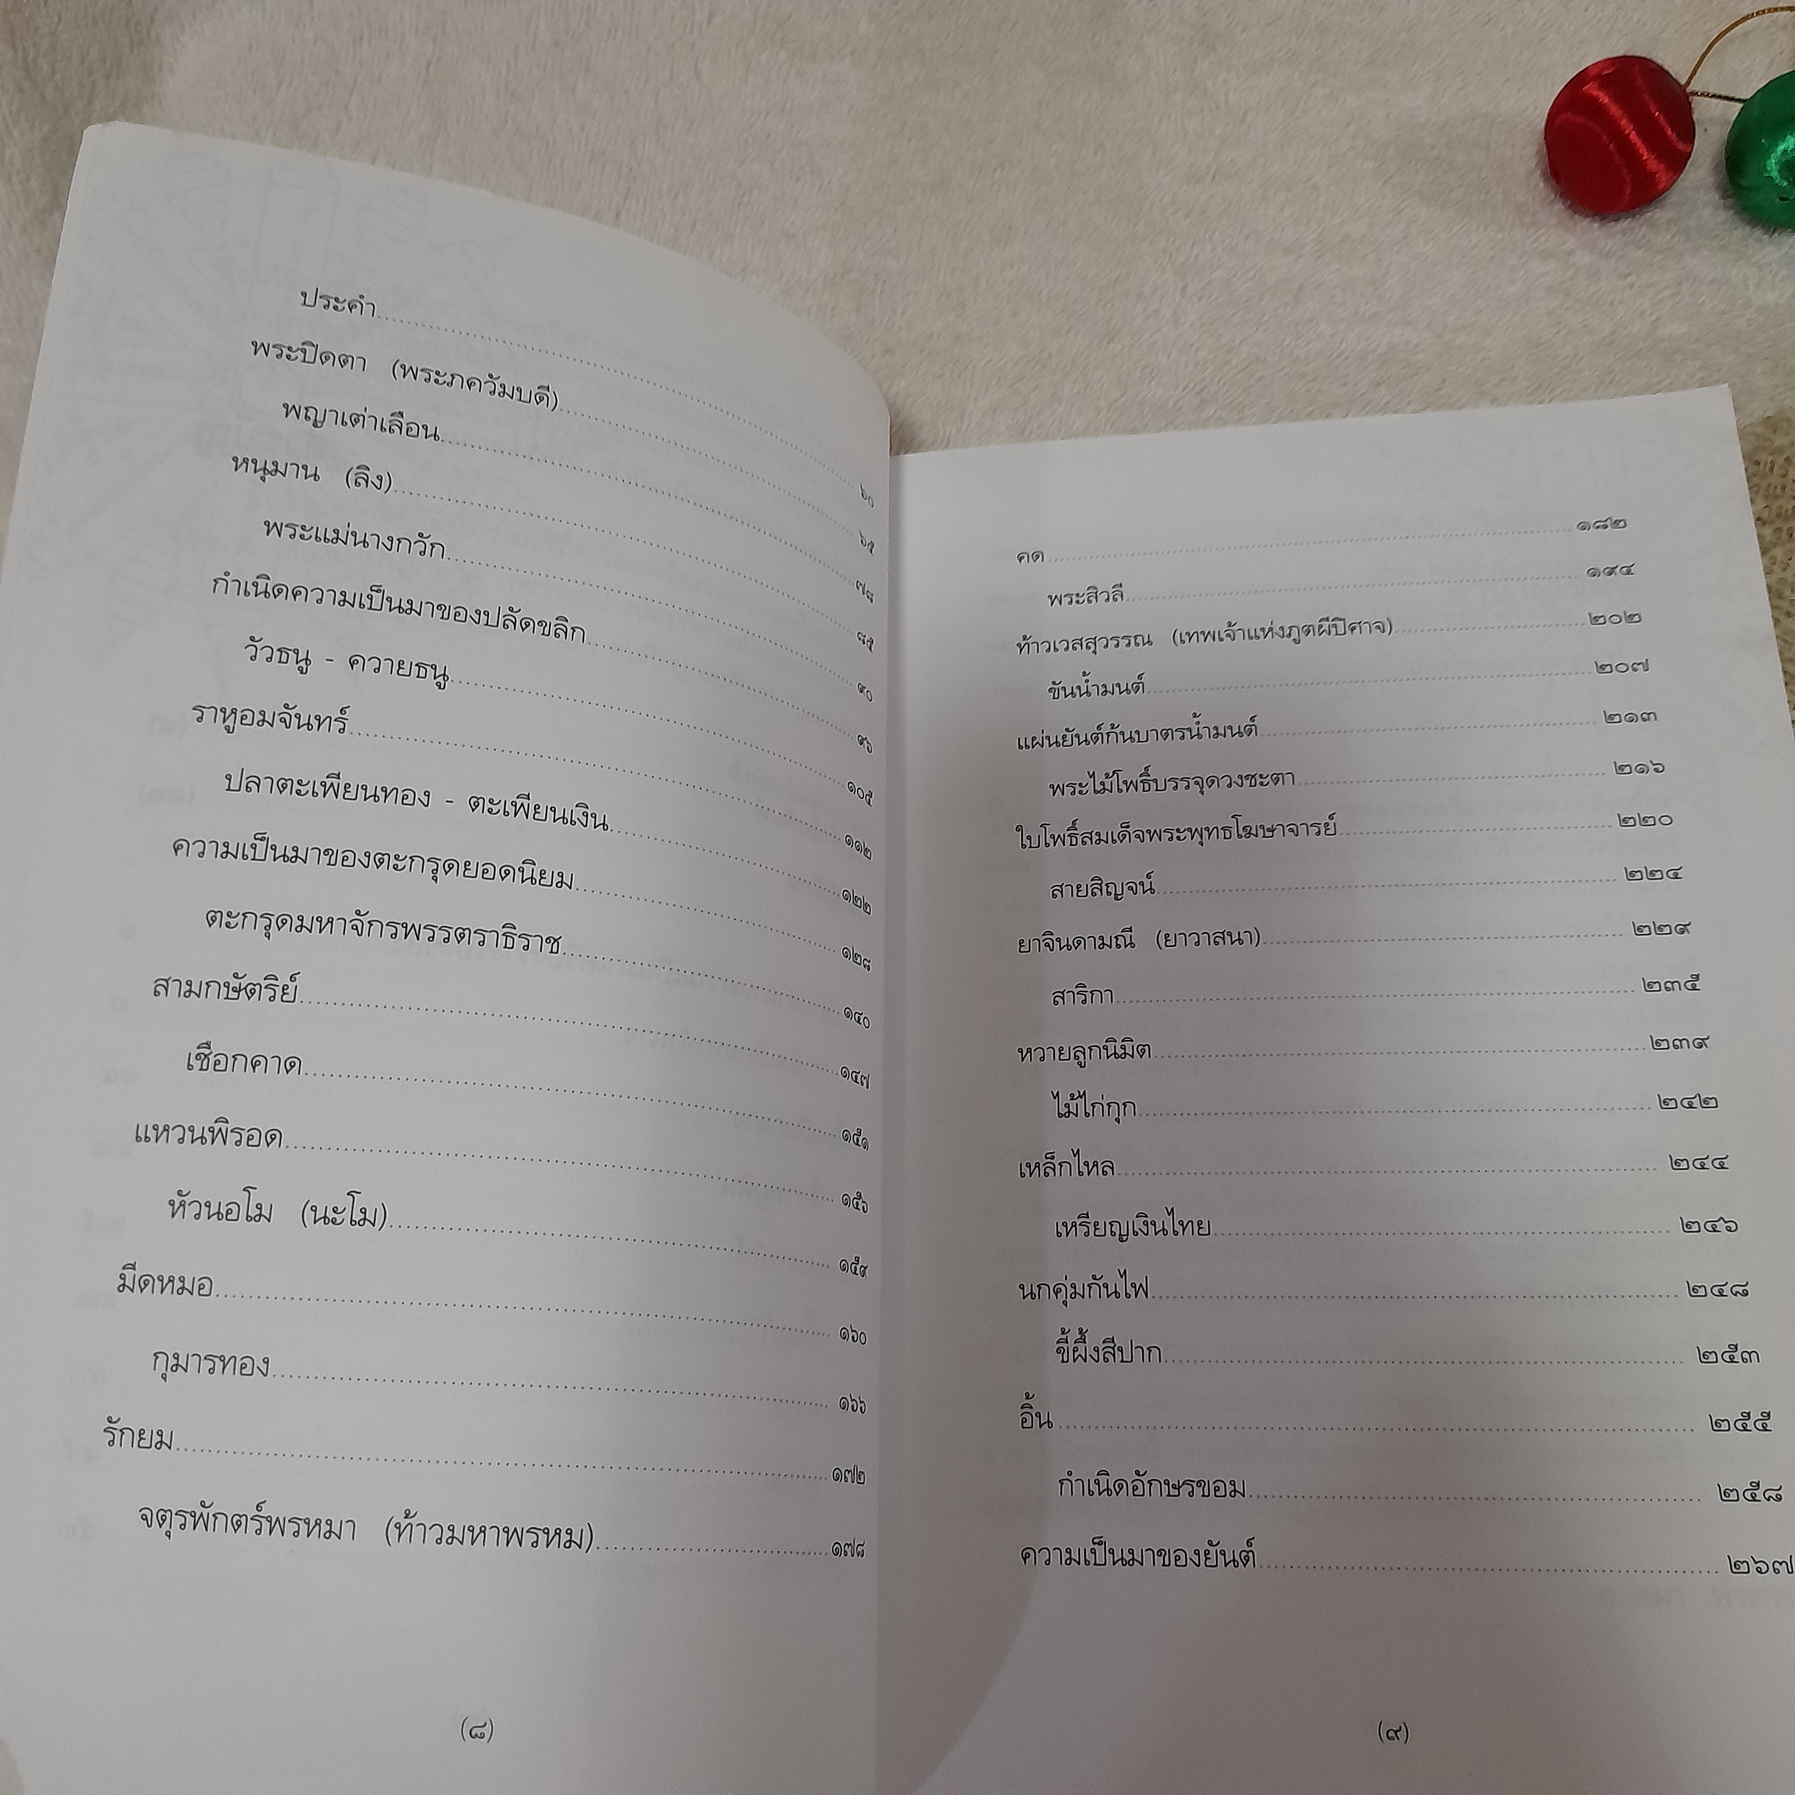 ประคำ ๖๐
พระปิดตา (พระภควัมบดี) ๖๕
พญาเต่าเลือน ๗๘
หนุมาน (ลิง) ๘๕
พระแม่นางกวัก ๙๐
กำเนิดความเป็นมาของปลัดขลิก ๙๖
วัวธนู - ควายธนู ๑๐๕
ราหูอมจันทร์ ๑๑๒
ปลาตะเพียนทอง - ตะเพียนเงิน ๑๒๒
ความเป็นมาของตะกรุดยอดนิยม ๑๒๘
ตะกรุดมหาจักรพรรตราธิราช ๑๔๐
สามกษัตริย์ ๑๔๗
เชือกคาด ๑๕๑
แหวนพิรอด ๑๕๖
หัวนอโม (นะโม) ๑๕๙
มีดหมอ ๑๖๐
กุมารทอง ๑๖๖
รักยม ๑๗๒
จตุรพักตร์พรหมา (ท้าวมหาพรหม) ๑๗๘
(๘)
คด ๑๘๒
พระสิวลี ๑๙๔
ท้าวเวสสุวรรณ (เทพเจ้าแห่งภูตผีปิศาจ) ๒๐๒
ขันน้ำมนต์ ๒๐๗
แผ่นยันต์ก้นบาตรน้ำมนต์ ๒๑๓
พระไม้โพธิ์บรรจุดวงชะตา ๒๑๖
ใบโพธิ์สมเด็จพระพุทธโฆษาจารย์ ๒๒๐
สายสิญจน์ ๒๒๔
ยาจินดามณี (ยาวาสนา) ๒๒๙
สาริกา ๒๓๕
หวายลูกนิมิต ๒๓๙
ไม้ไก่กุก ๒๔๒
เหล็กไหล ๒๔๔
เหรียญเงินไทย ๒๔๖
นกคุ่มกันไฟ ๒๔๘
ขี้ผึ้งสีปาก ๒๕๓
อิ้น ๒๕๕
กำเนิดอักษรขอม ๒๕๘
ความเป็นมาของยันต์ ๒๖๗
(๙)